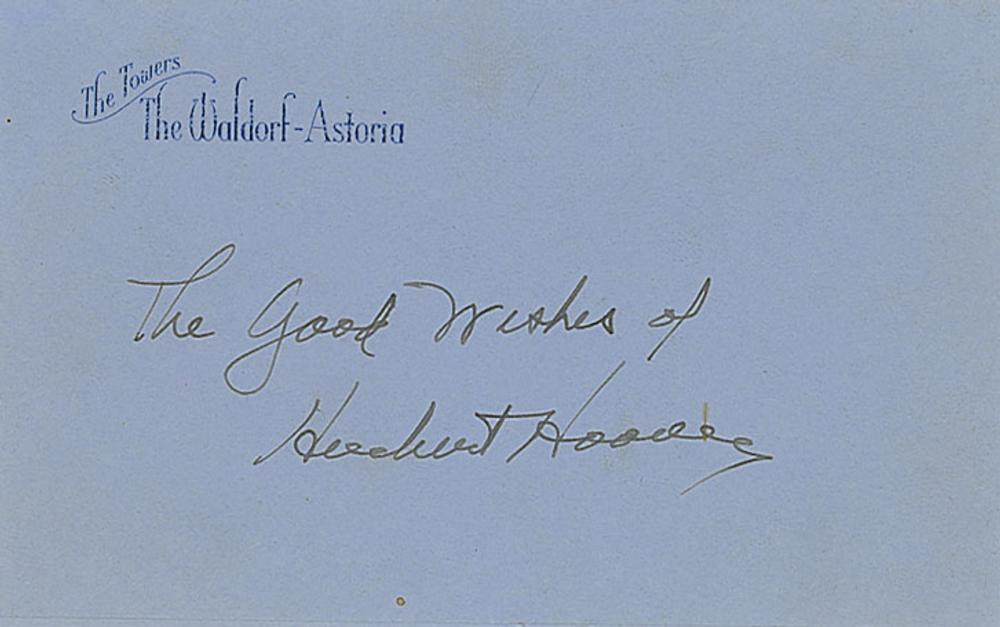 The Towers
The Waldorf-Astoria
The Good Wishes of
Herbert Hoover